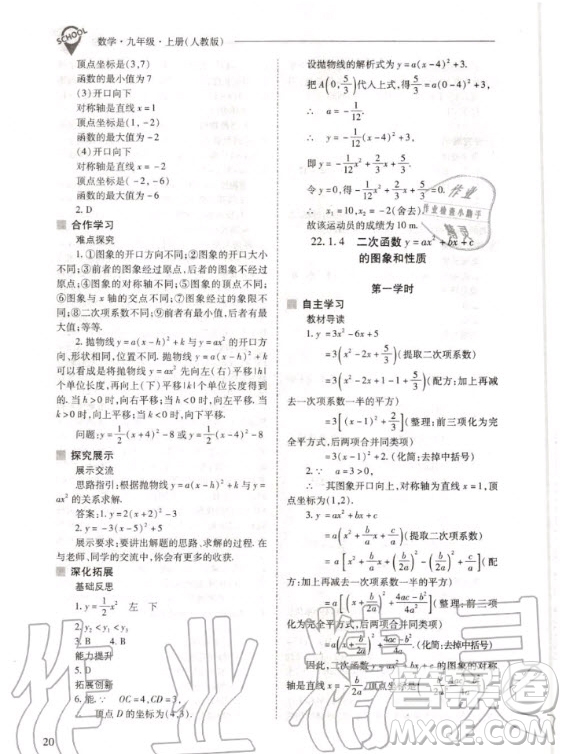 数学·九年级·上册(人教版)
顶点坐标是(3,7)
函数的最小值为7
(3)开口向下
对称轴是直线x=1
顶点坐标是(1,-2)
函数的最大值为-2
(4)开口向下
对称轴是直线x=-2
顶点坐标是(-2,-6)
函数的最大值为-6
2. D
合作学习
难点探究
1. ①图象的开口方向不同;②图象的开口大小不
同;③前者的图象不经过原点,后者的图象经过原点;
④图象与x轴的交点不同;⑤图象的对称轴不同;
⑥图象与y轴的交点不同;⑦图象经过的象限不同;
⑧二次项系数不同;⑨前者有最小值,后者有最大
值;等等.
2. 一般地,抛物线y=a(x-h)²+k与y=ax²的开口方
向相同,位置不同.把抛物线y=a(x-h)²+k的图象
可以看成是将抛物线y=ax²先向左(右)平移|h|
个单位长度,再向上(下)平移|k|个单位长度得到
的.当h>0时,向右平移;当h<0时,向左平移.当
k>0时,向上平移;当k<0时,向下平移.
问题:y=1/2(x+4)²-8或y=1/2(x-4)²-8
探究展示
展示交流
思路指引:根据抛物线y=a(x-h)²+k与y=
ax²的关系求解.
答案:1. y=2(x+2)²-3
2. y=-3(x-5)²+5
展示要求:要讲出解题的思路、求解的方法,再
与老师、同学的交流中,你会有更多的收获.
深化拓展
基础反思
1. y=1/2x² 左 下
2. y₂<y₁
3. B 4. B
能力提升
5. D
拓展创新
6. 能. ∵ OC=4,CD=4,
顶点D的坐标为(4,3).
20
设抛物线的解析式为y=a(x-4)²+3,
把A(0,5/3)代人上式,得5/3=a(0-4)²+3,
∴ a=-1/12.
∴ y=-1/12(x-4)²+3,
即y=-1/12x²+2/3x+5/3.
令y=0,得-1/12x²+2/3x+5/3=0,
∴ x₁=10,x₂=-2(舍去).
故该运动员的成绩为10 m.
22.1.4 二次函数y=ax²+bx+c
的图象和性质
第一学时
自主学习
教材导读
1. y=3x²-6x+5
=3(x²-2x+5/3)(提取二次项系数)
=3(x²-2x+1-1+5/3)(配方:加上再减
去一次项系数一半的平方)
=3[(x-1)²+2/3](整理:前三项化为完
全平方式,后两项合并同类项)
=3(x-1)²+2. (化简:去掉中括号)
2. ∵ a=3>0,
∴ 其图象开口向上,对称轴为直线x=1,
顶点坐标为(1,2).
3. y=ax²+bx+c
=a(x²+b/a x+c/a)(提取二次项系数)
=a[x²+b/a x+(b/2a)²-(b/2a)²+c/a](配
方:加上再减去一次项系数一半的平方)
=a[(x+b/2a)²+(4ac-b²)/4a²](整理:前三项
化为完全平方形式,后两项合并同类项)
=a(x+b/2a)²+(4ac-b²)/4a. (化简:去掉中括号)
因此,二次函数y=ax²+bx+c的图象的对称
轴是直线x=-b/2a,顶点坐标是
作业
作业检查小助手
作业精灵
答案圈
MXQE.COM